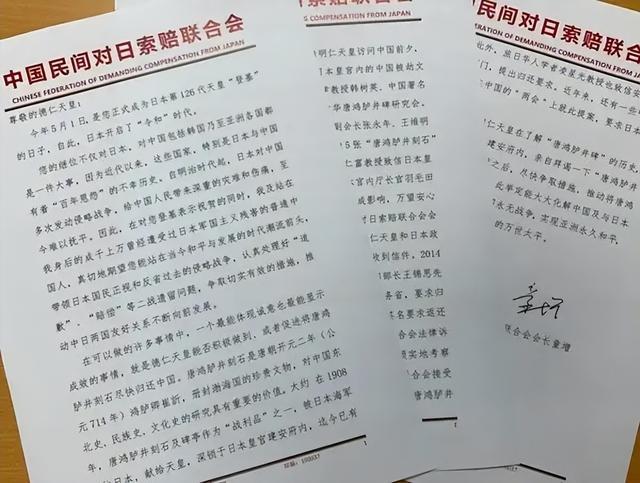 中国民间对日索赔联合会
CHINESE FEDERATION OF DEMANDING COMPENSATION FROM JAPAN
尊敬的德仁天皇：
今年5月1日，是您正式成为日本第126代天皇“登基”
的日子，自此，日本开启了“令和”时代。
您的继位不仅对日本，对中国包括韩国乃至亚洲各国都
是一件大事，因为近代以来，这些国家，特别是日本与中国
有着“百年恩怨”的不幸历史。自明治时代起，日本对中国
多次发动侵略战争，给中国人民带来深重的灾难和伤痛，至
今难以抚平。因此，在对您登基表示祝贺的同时，我及站在
我身后的成千上万曾经遭受过日本军国主义残害的普通中
国人，真切地期望您能站在当今和平与发展的时代潮流前头，
带领日本国民正视和反省过去的侵略战争，认真处理好“道
歉”、“赔偿”等二战遗留问题，争取切实有效的措施，推
动中日两国友好关系不断向前发展。
在可以做的许多事情中，一个最能体现诚意也最能显示
成效的事情，就是德仁天皇能否积极做到、或者促进将唐鸿
胪井刻石尽快归还中国。唐鸿胪井刻石是唐朝开元二年（公
元714年）鸿胪卿崔忻，册封渤海国的珍贵文物，对中国东
北史、民族史、文化史的研究具有重要的价值。大约在1908
年，唐鸿胪井刻石及碑亭作为“战利品”之一，被日本海军
日本，献给天皇，深锁于日本皇宫建安府内，迄今已有
1
联合会
COMPENSATION FROM JAPAN
明仁天皇访问中国前夕，
本皇宫内的中国被劫文
教授韩树英、中国著名
华唐鸿胪井碑研究会。
副会长张永年、王维明
5张“唐鸿胪井刻石”
仁富教授致信日本皇
宫内厅长官羽毛田
成影响，万望安心
对日索赔联合会会
仁天皇和日本政
收到信件。2014
部长王锦思先
务省，要求归
名要求返还
合会法律诉
员实地考察
合会接受
唐鸿胪井
合会
COMPENSATION FROM JAPAN
此外，旅日华人学者夌星光教授也致信安
门，提出归还要求。近年来，还有一些
中国的“两会”上就此提案，要求日本
仁天皇在了解“唐鸿胪井碑”的历史，
建安府内，亲自拜谒一下“唐鸿胪井
之后，尽快争取措施，推动将唐鸿
此举定能大大化解中日及与日本
永无战争，实现亚洲永久和平，
的万世太平。
童增
联合会会长童增